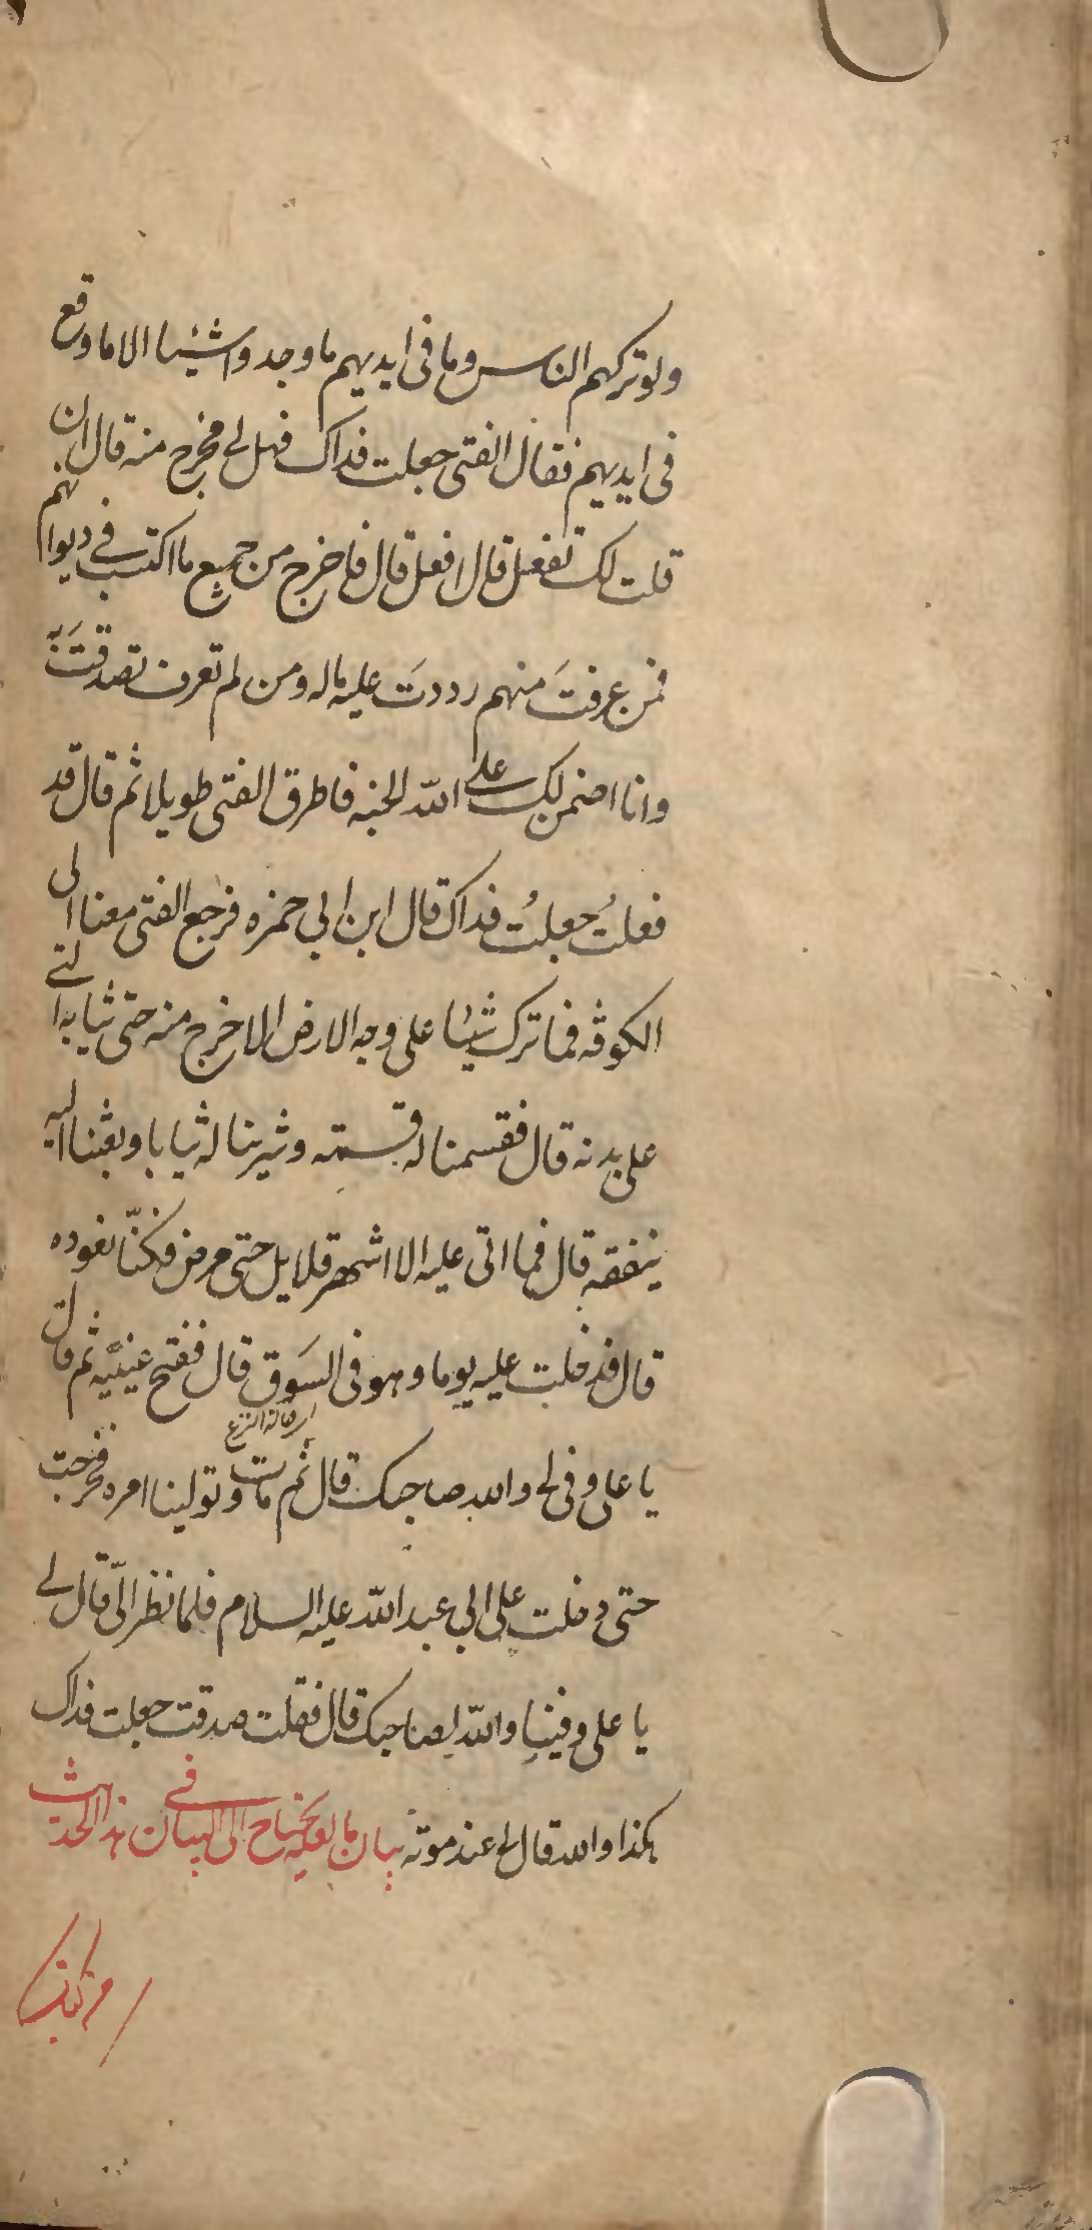 ولو تركهم الناس وما فى ايديهم ما وجدوا شيئا الا ما وقع
فى ايديهم فقال الفتى جعلت فداك فهل لى مخرج منه قال ان
قلت لك تفعل قال افعل قال فاخرج من جميع ما اكتسبت فى ديوانهم
فمن عرفتَ منهم رددتَ عليه ماله ومن لم تعرف تصدقتَ به
وانا اضمن لك على الله الجنه فاطرق الفتى طويلا ثم قال قد
فعلتُ جعلتُ فداك قال ابن ابي حمزه فرجع الفتى معنا الى
الكوفه فما ترك شيئا على وجه الارض الا خرج منه حتى ثيابه التى
على بدنه قال فقسمنا له قسمته وشرينا له ثيابا وبعثنا اليه
بنفقه قال فما اتى عليه الا اشهر قلايل حتى مرض فكنّا نعوده
قال فدخلت عليه يوما وهو فى السَوق قال ففتح عينيه ثم قال
اى حالة النزع
يا على وفى لى والله صاحبك قال ثم مات وتولينا امره فخرجت
حتى دخلت على ابي عبد الله عليه السلام فلما نظر الىّ قال لى
يا على وفينا والله لصاحبك قال فقلت صدقت جعلت فداك
هكذا والله قال لى عند موته بيان ما لعله يحتاج الى البيان فى هذا الحديث